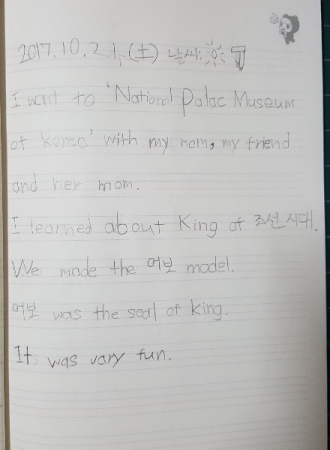 2017.10.21.(土) 날씨:
I went to 'National Palac Museum
of Korea' with my mom, my friend
and her mom.
I learned about King of 조선시대.
We made the 어보 model.
어보 was the seal of king.
It was vary fun.